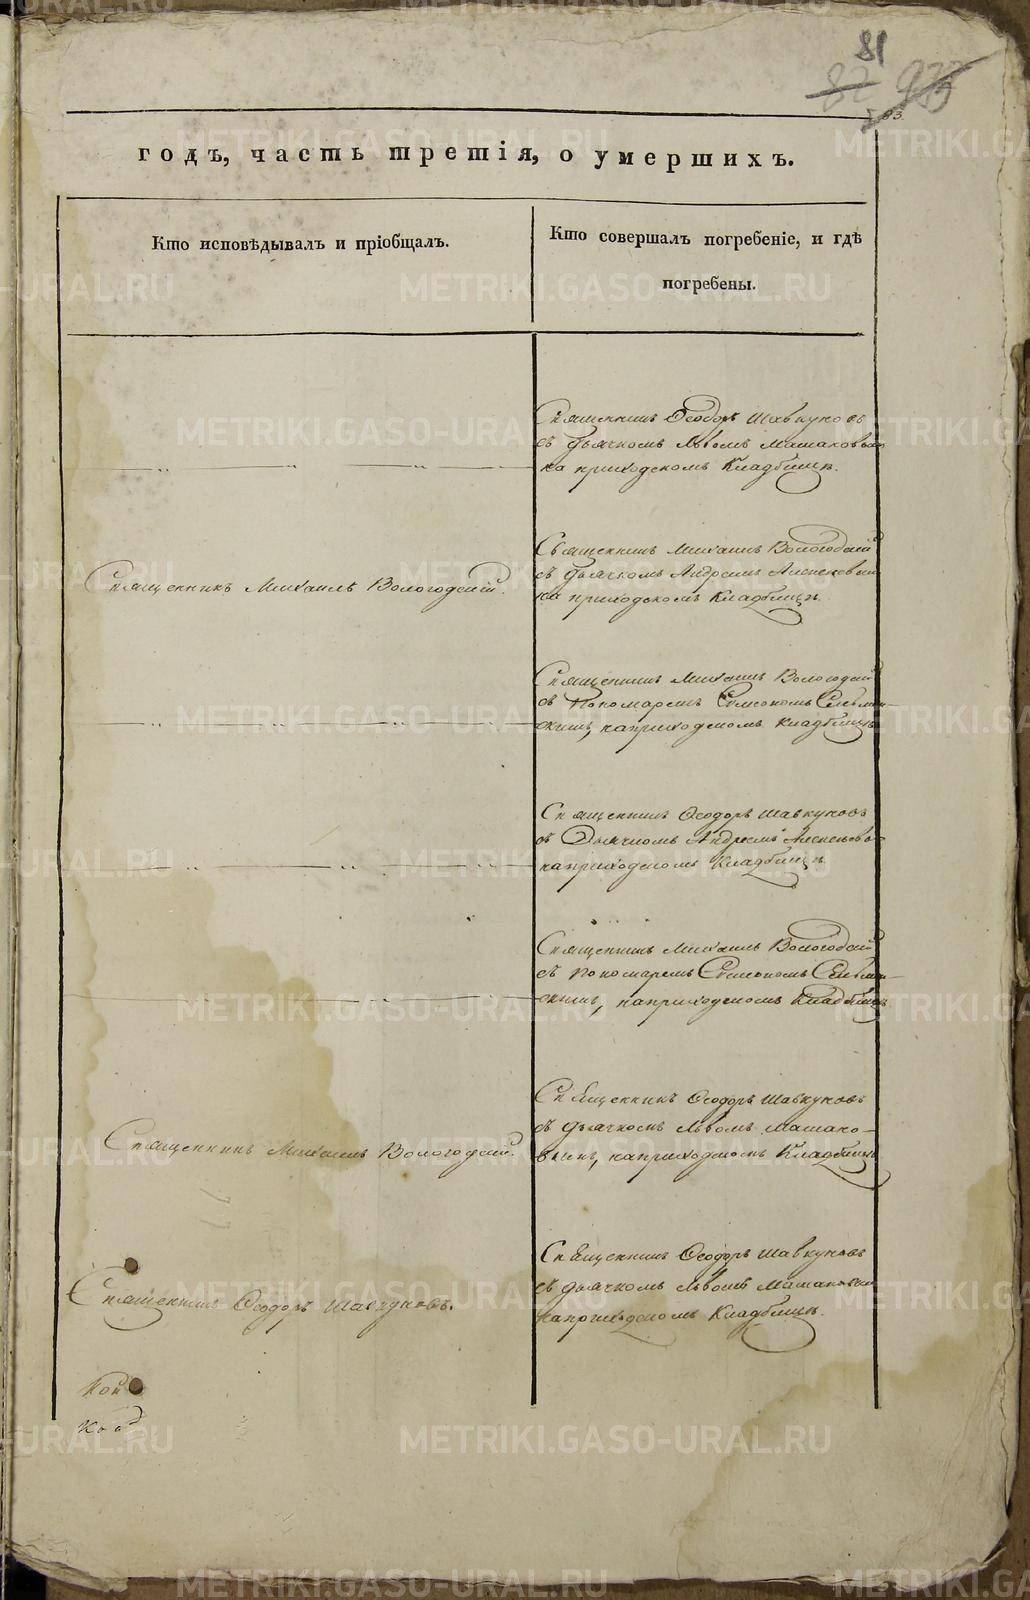 81
87 933
93.
годъ, часть третія, о умершихъ.
Кто исповѣдывалъ и пріобщалъ.
Кто совершалъ погребеніе, и гдѣ
погребены.
Священникъ Ѳеодоръ Шавкуновъ
съ дьячкомъ Львомъ Машановымъ
на приходскомъ Кладбищѣ.
Священникъ Михаилъ Вологодскій.
Священникъ Михаилъ Вологодскій
съ дьячкомъ Андреемъ
на приходскомъ Кладбищѣ.
Священникъ Михаилъ Вологодскій
съ Пономаремъ Симеономъ Сельмен-
скимъ, на приходскомъ Кладбищѣ
Священникъ Ѳеодоръ Шавкуновъ
съ Дьячкомъ Андреемъ
на приходскомъ Кладбищѣ.
Священникъ Михаилъ Вологодскій
съ Пономаремъ Симеономъ Сельмен-
скимъ, на приходскомъ Кладбищѣ
Священникъ Михаилъ Вологодскій.
Священникъ Ѳеодоръ Шавкуновъ
съ дьячкомъ Львомъ
на приходскомъ Кладбищѣ
Священникъ Ѳеодоръ Шавкуновъ.
Священникъ Ѳеодоръ Шавкуновъ
съ дьячкомъ Львомъ
на приходскомъ Кладбищѣ.
METRIKI.GASO-URAL.RU